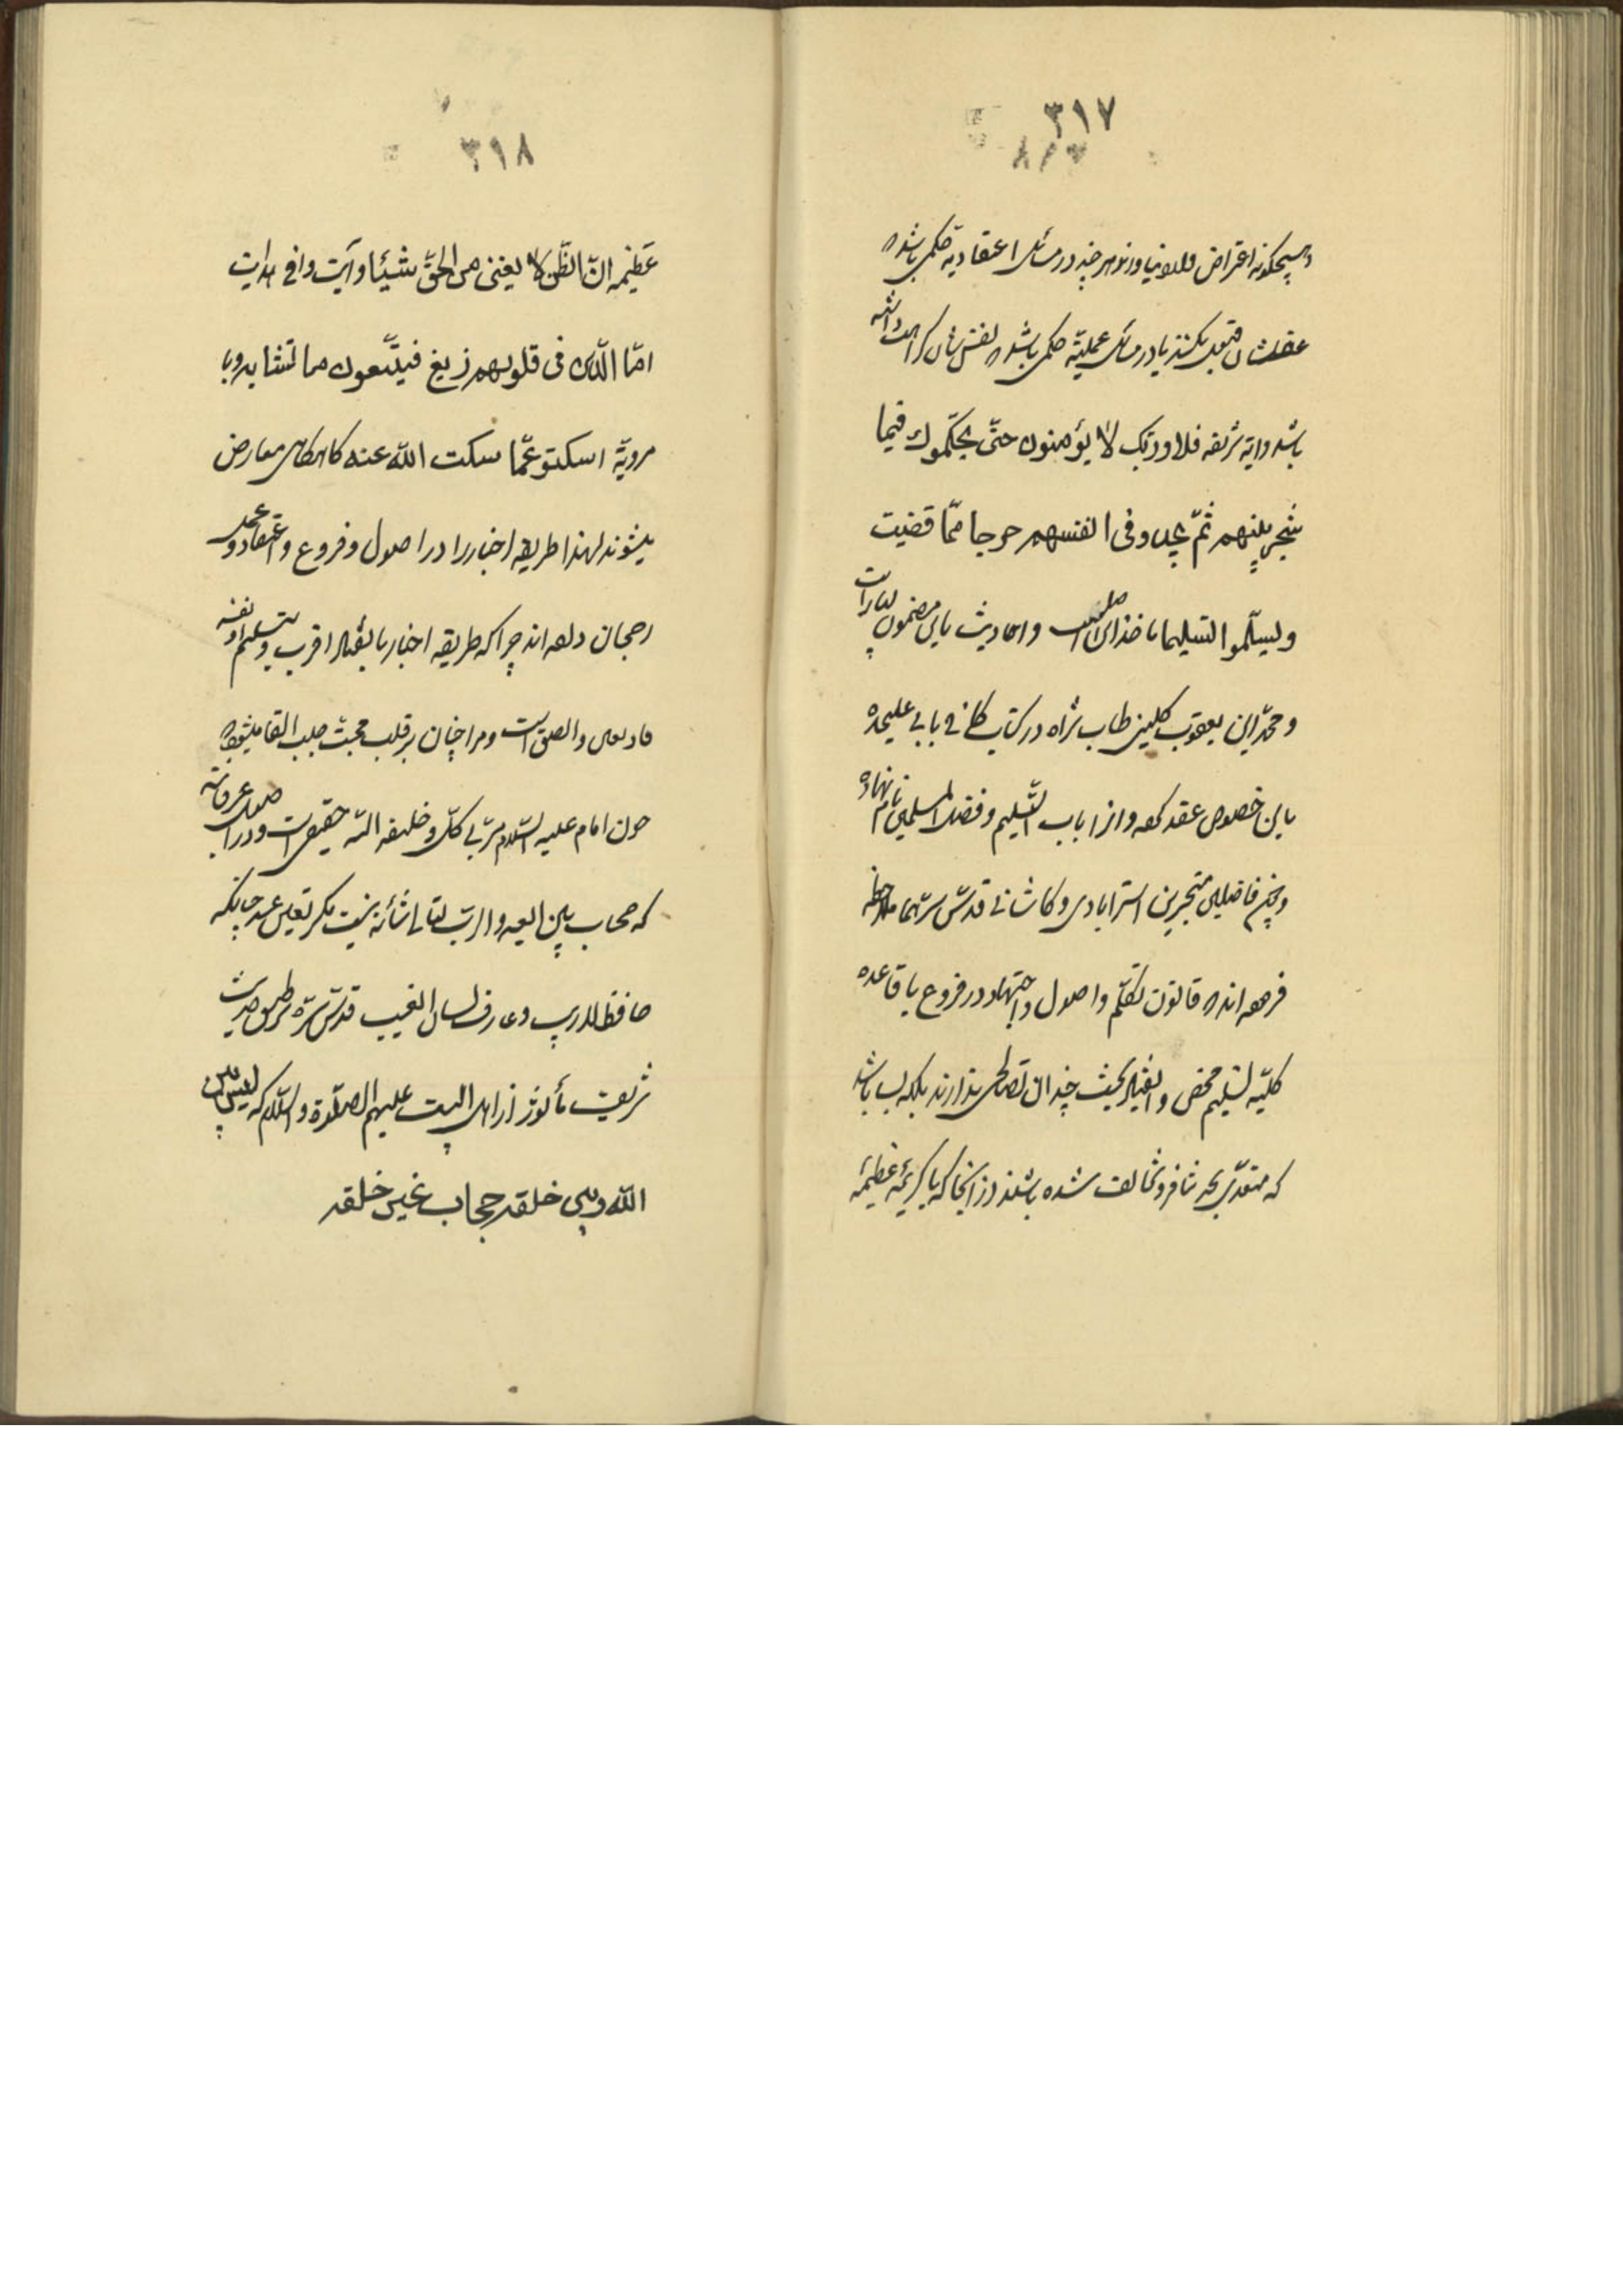 ٣١٧
وهیچگونه اعتراض نیاورند هر چند در مسائل اعتقادیه حکمی باشد که
عقلشان قبول نکند یا در مسائل عملیّه حکمی باشد که نفسشان کراهت داشته
باشد وایه شریفه فلا وربّک لا یؤمنون حتّی یحکّموك فیما
شجر بینهم ثمّ لا یجدوا فی انفسهم حرجا ممّا قضیت
ویسلّموا تسلیما ماخذ این مطلب است واحادیث باین مضمون بسیار است
ومحمّد ابن یعقوب کلینی طاب ثراه در کتاب کافی بابی علیحده
باین خصوص عقد کرده وانرا باب التسلیم وفضل المسلمین نام نهاده
وچنین فاضلین متبحرین استرابادی وکاشانی قدّس سرّهما ملاحظه
فرموده اند که قانون تکلّم واصول واجتهاد در فروع با قاعده
کلیّه تسلیم محض وانقیاد بحث چندان تصالحی ندارند بلکه بسا باشد
که متعدّی بحد تنافر وتخالف شده باشند از انجا که با کریمهٔ عظیمهٔ
٣١٨
عظیمه انّ الظّن لا یغنی من الحقّ شیئا وآیت وافی هدایت
امّا الّذین فی قلوبهم زیغ فیتّبعون ما تشابه وبا
مرویّهٔ اسکتو عمّا سکت الله عنه کاهکاهی معارض
میشوند لهذا طریقهٔ اخبار را در اصول وفروع واعتقاد وعمل
رجحان داده اند چرا که طریقه اخبار بانقیاد اقرب وتسلیم
والصق است ومرا چنان بر قلب محبّت جلب القا میشود که
چون امام علیه السّلام مربّی کلّ وخلیفه الله حقیقی است
که حجاب بین العبد والرب تعالی شأنه نیست مکر تعین عبد چنانکه
حافظ وعارف لسان الغیب قدّس سرّه بر طبق حدیث
شریف مأثور از اهل البیت علیهم الصّلوة والسّلام که لیس بین
الله وبین خلقه حجاب غیر خلقه